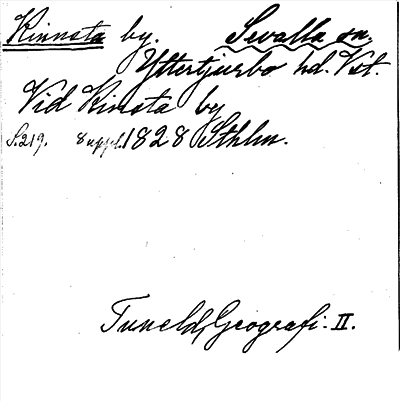 Kinnsta by. Sevalla sn.
Yttertjurbo hd. Vst.
Vid Kinsta by
S.219. 8 uppl. 1828 Sthlm.
Tuneld, Geografi. II.